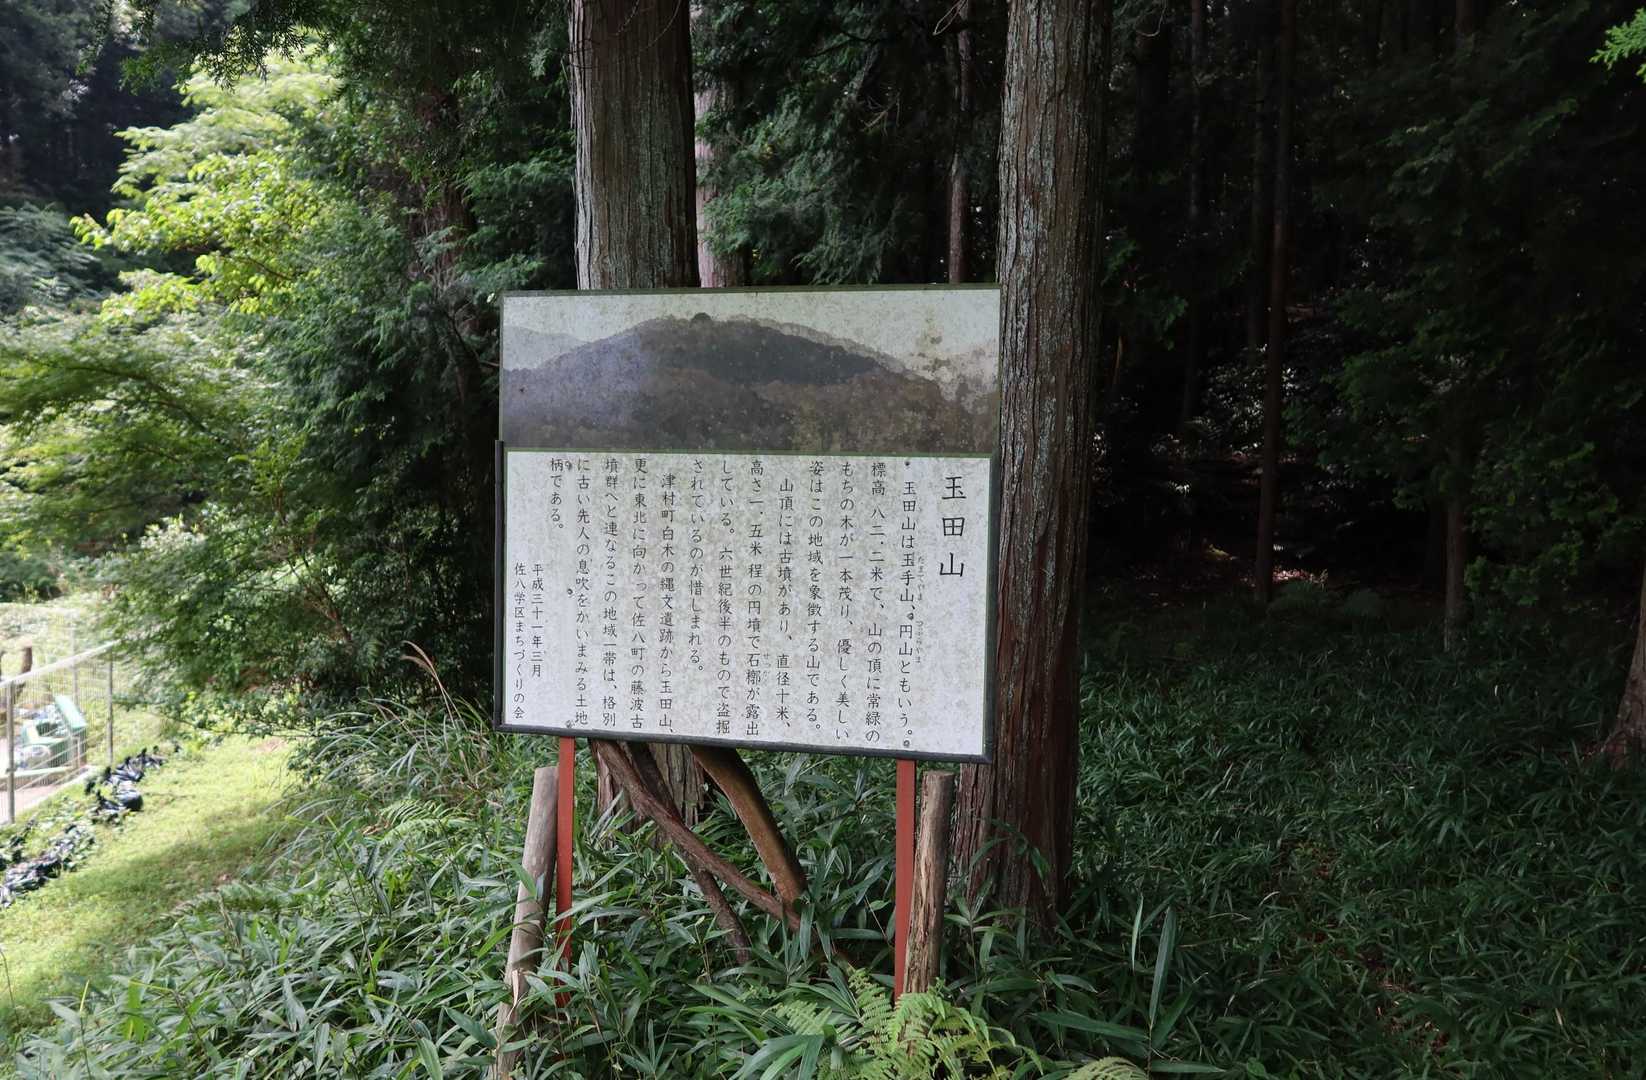 玉田山
玉田山は玉手山、円山ともいう。
たまてやま
つぶらやま
標高 八二.二米で、山の頂に常緑の
もちの木が一本茂り、優しく美しい
姿はこの地域を象徴する山である。
山頂には古墳があり、直径十米、
高さ一.五米程の円墳で石槨が露出
せっかく
している。六世紀後半のもので盗掘
されているのが惜しまれる。
津村町白木の縄文遺跡から玉田山、
更に東北に向かって佐八町の藤波古
墳群へと連なるこの地域一帯は、格別
に古い先人の息吹をかいまみる土地
柄である。
平成三十一年三月
佐八学区まちづくりの会